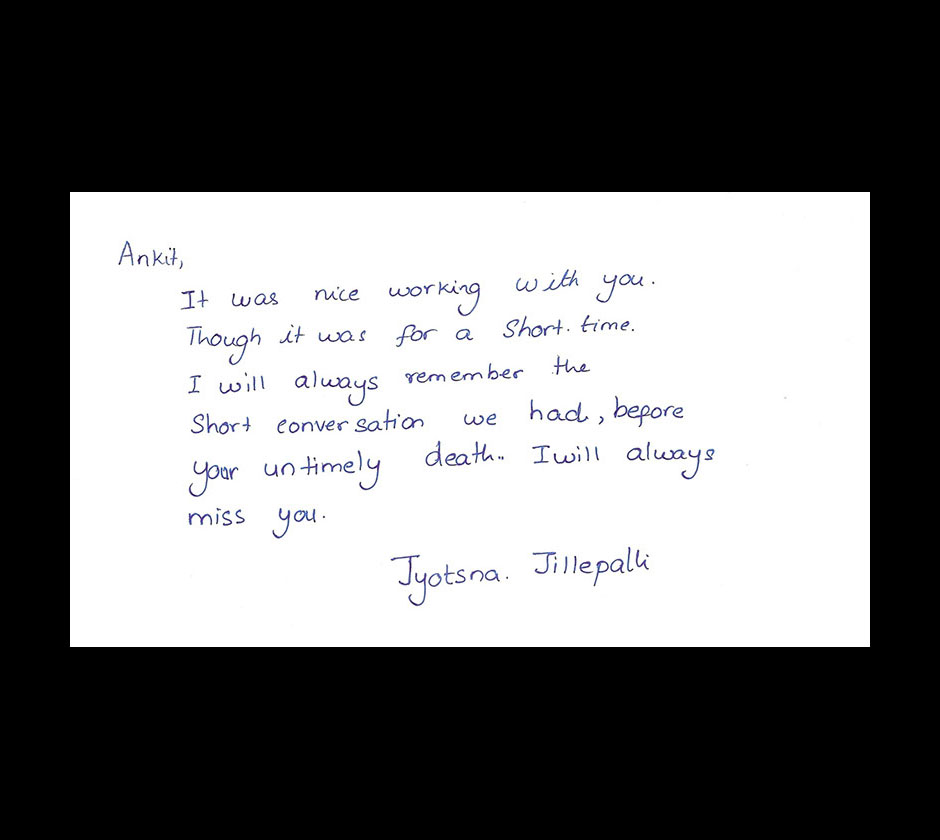 Ankit,
It was nice working with you.
Though it was for a short. time.
I will always remember the
Short conversation we had, before
your untimely death.. I will always
miss you.
Jyotsna. Jillepalli